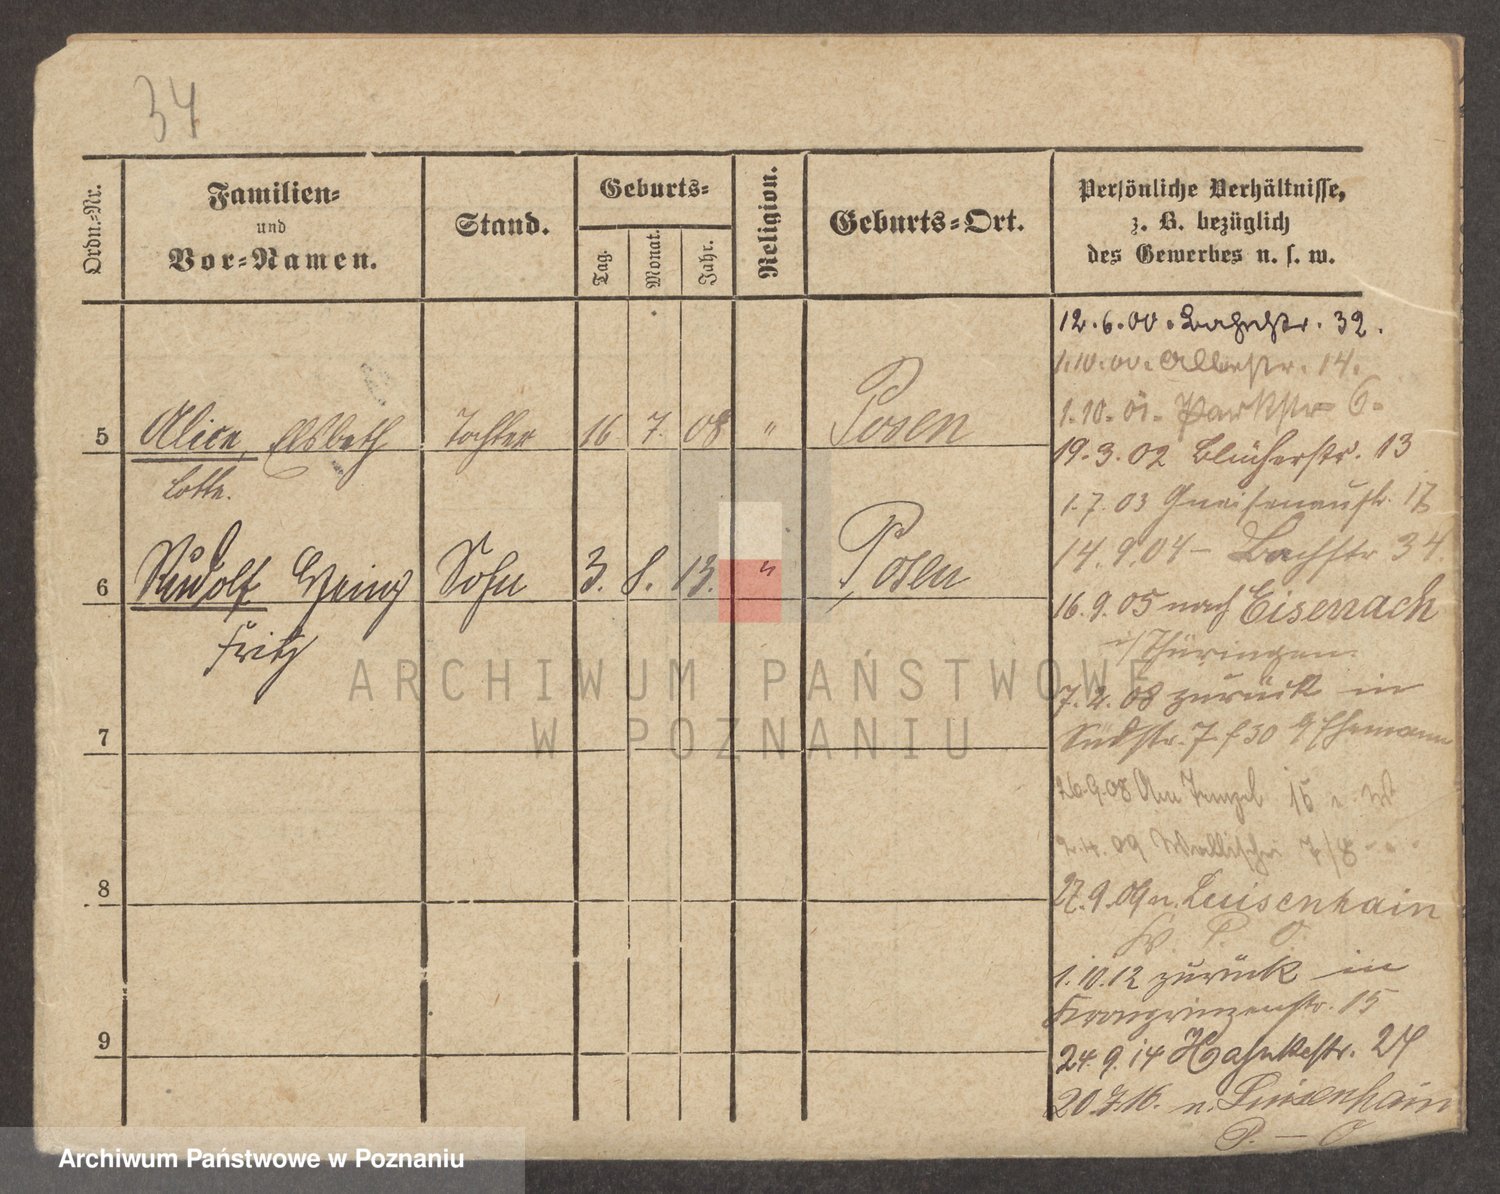 34
Ordn.-Nr.
Familien-
und
Vor-Namen.
Stand.
Geburts-
Tag.
Monat.
Jahr.
Religion.
Geburts-Ort.
Persönliche Verhältnisse,
z. B. bezüglich
des Gewerbes u. s. w.
5 Alice, Elsbeth Tochter 16. 7. 08 " Posen
Lotte.
6 Rudolf Heinz Sohn 3. 8. 13. " Posen
Fritz
7
8
9
12.6.00. Bahnstr. 32.
1.10.00. 14.
1.10.01. Parkstr. 6.
19.3.02 Blücherstr. 13
1.7.03 Gneisenaustr. 17
14.9.04 - Bachstr. 34.
16.9.05 nach Eisenach
i/Thüringen
7.2.08 zurück in
Südstr. 7 Ehemann
26.9.08 Am 15
2.4.09 Wallischei 7/8
27.9.09 n. Luisenhain
P. O.
1.10.12 zurück in
Kronprinzenstr. 15
24.9.14 Hahnkestr. 24
20.7.16. n. Luisenhain
P. - O
ARCHIWUM PAŃSTWOWE
W POZNANIU
Archiwum Państwowe w Poznaniu